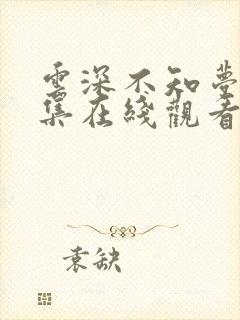 雲深不知夢
集在綫觀看
袁缺